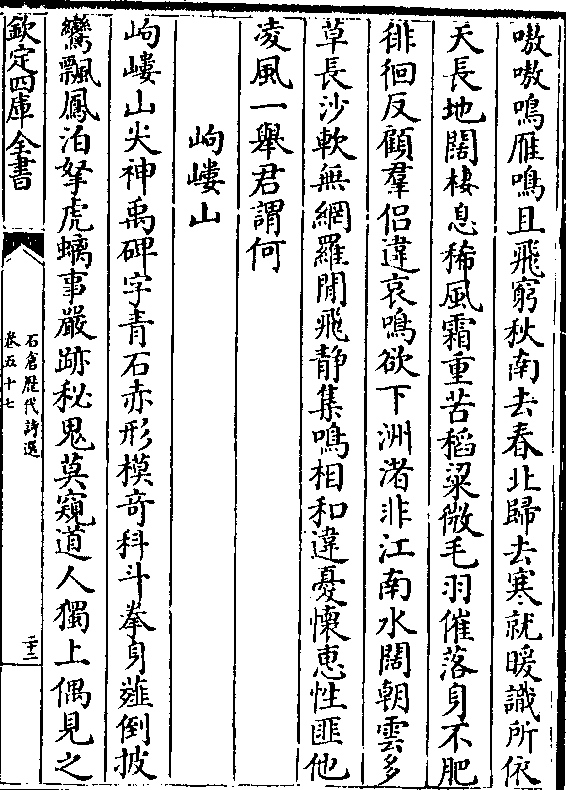 嗷嗷鳴雁鳴且飛窮秋南去春北歸去寒就暖識所依
天長地闊棲息稀風霜重苦稻粱微毛羽催落身不肥
徘徊反顧羣侶違哀鳴欲下洲渚非江南水闊朝雲多
草長沙軟無網羅閒飛静集鳴相和違憂懷恵性匪他
凌風一舉君謂何
岣嶁山
岣嶁山尖神禹碑字青石赤形模奇科斗拳身薤倒披
鸞飄鳳泊拏虎螭事嚴跡秘鬼莫窺道人獨上偶見之
欽定四庫全書
石倉歴代詩選
卷五十七
二十二